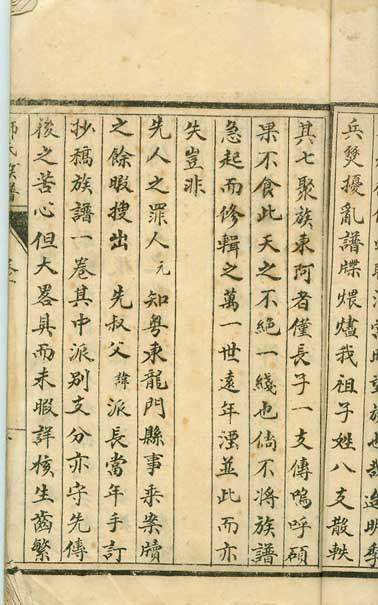 兵燹擾亂譜牒煨燼我祖子姓八支散軼
其七聚族東阿者僅長子一支傳嗚呼碩
果不食此天之不絕一綫也倘不將族譜
急起而修輯之萬一世遠年湮並此而亦
失豈非
先人之罪人元知粵東龍門縣事乘案牘
之餘暇搜出 先叔父諱派長當年手訂
抄稿族譜一卷其中派別支分亦守先傳
後之苦心但大畧具而未暇詳核生齒繁
氏族譜